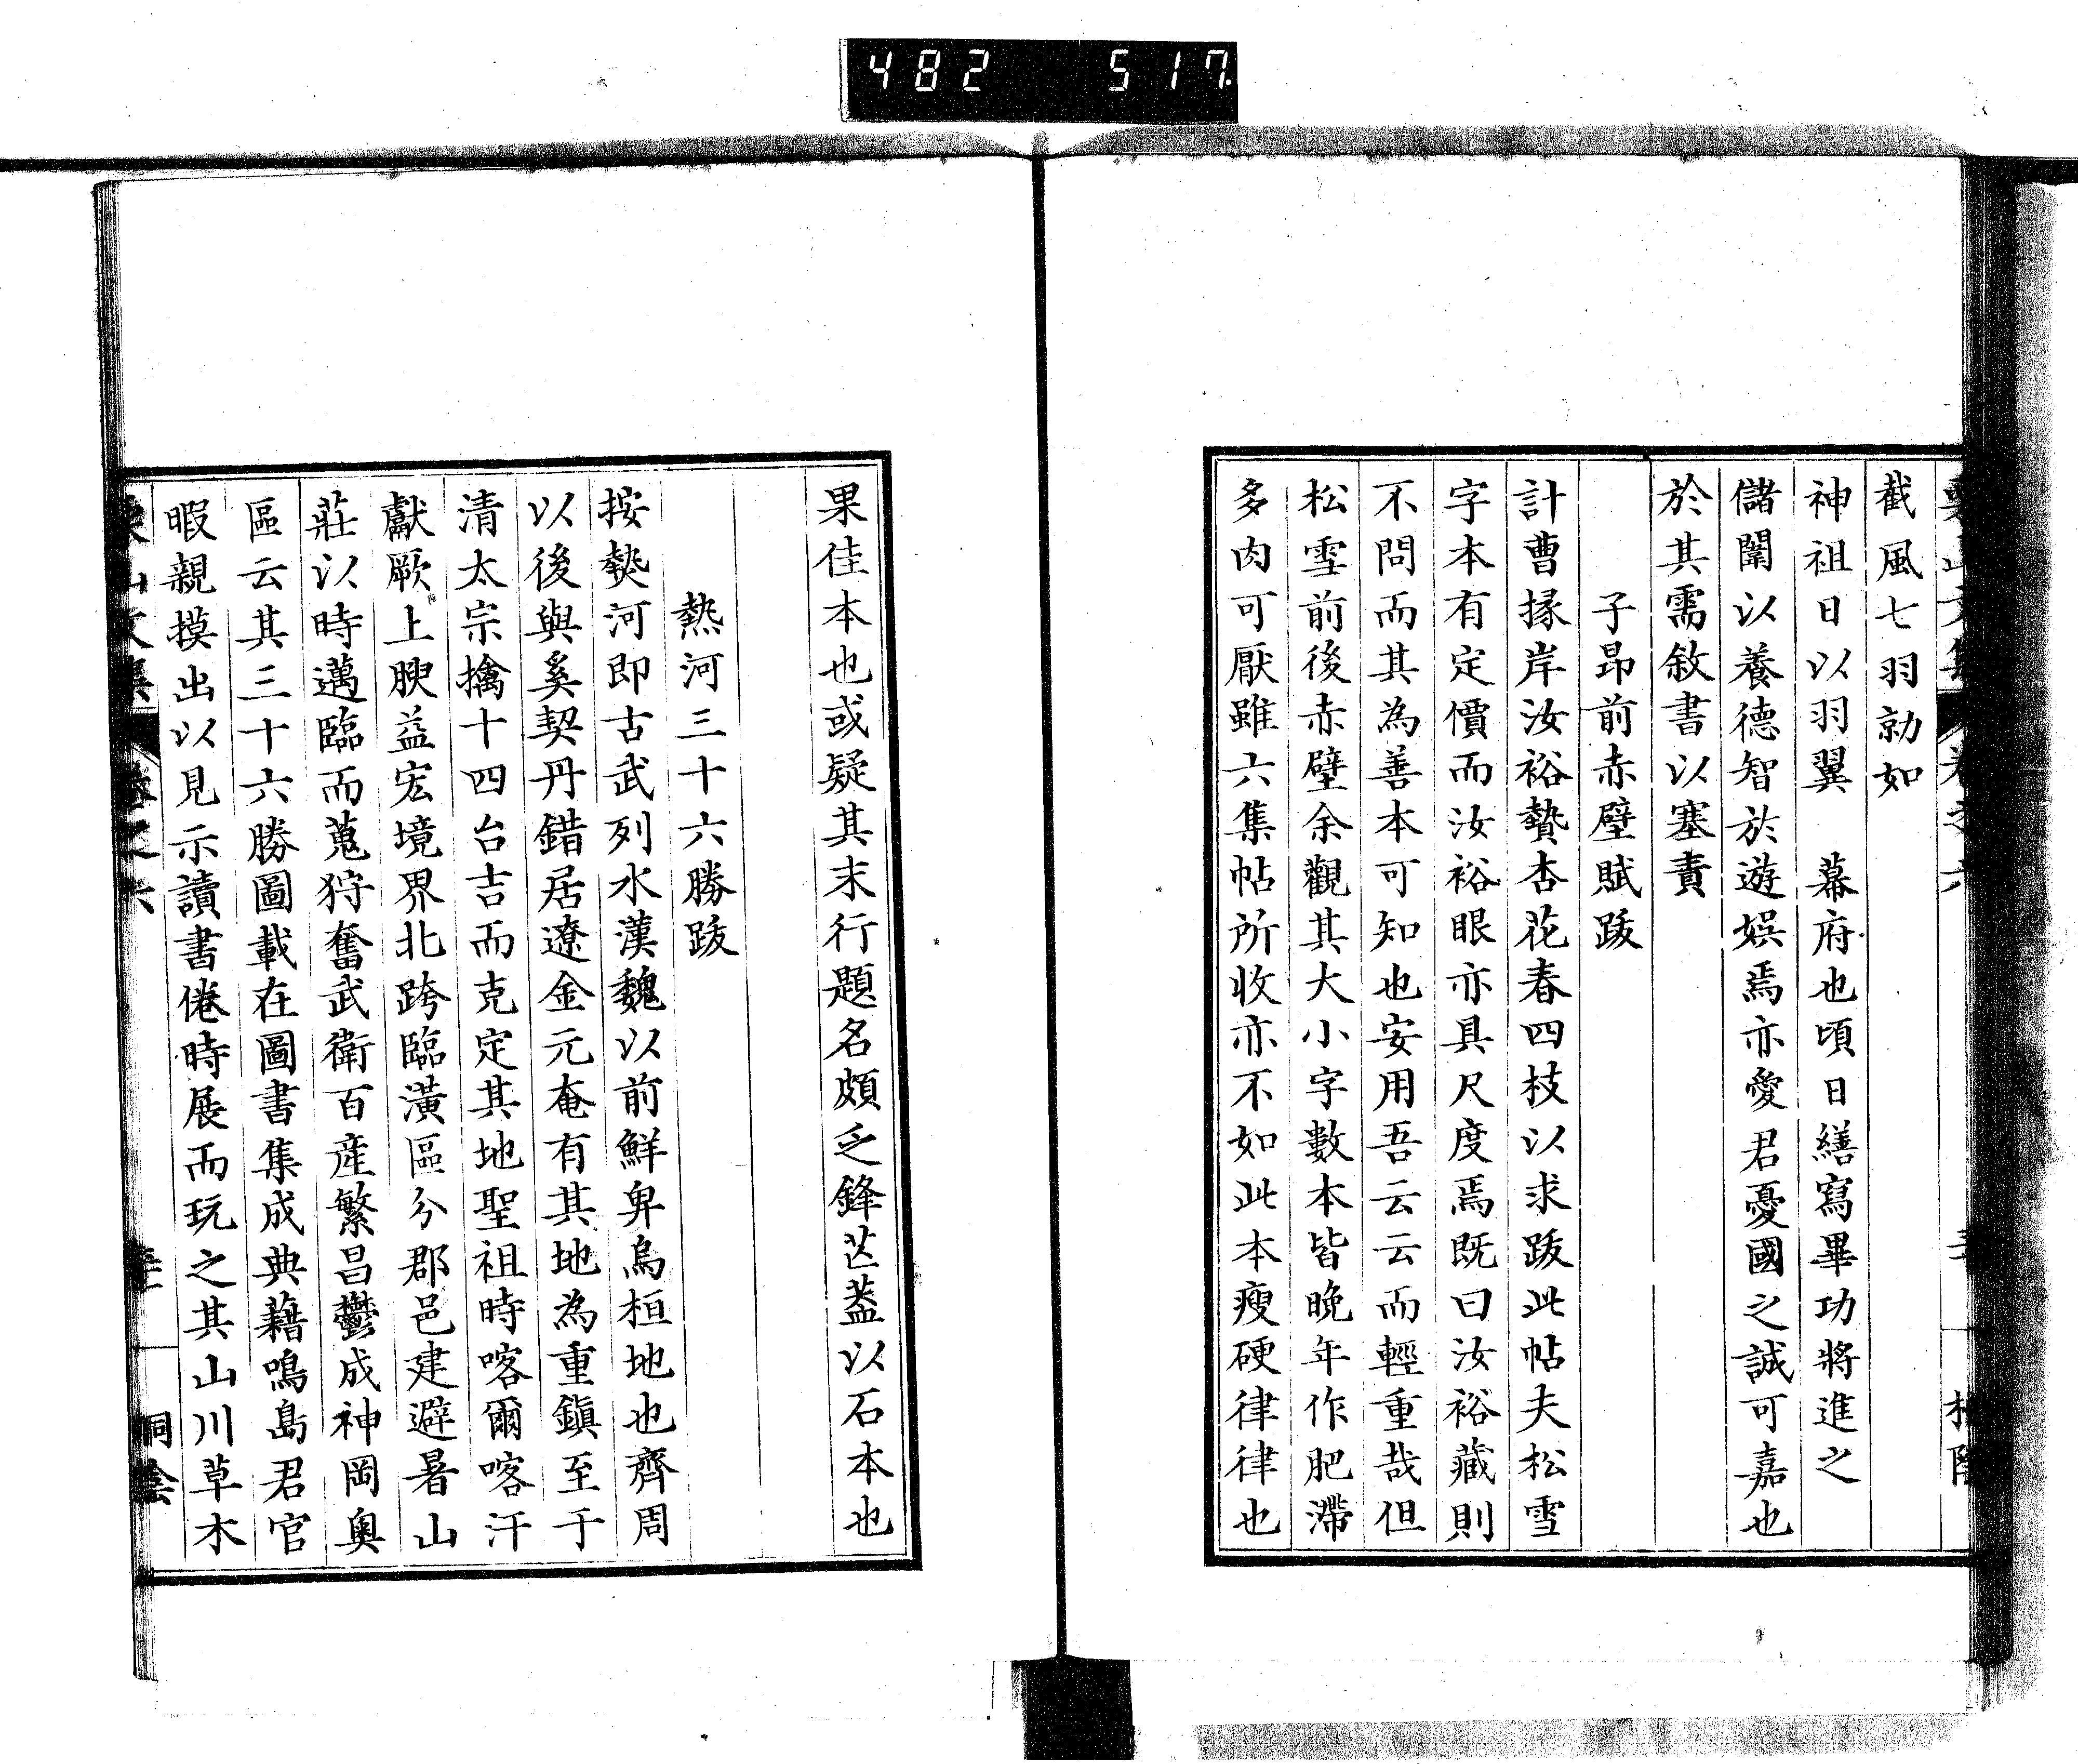 482 517
截風七羽勍如
神祖日以羽翼　幕府也頃日繕寫畢功將進之
儲闈以養德智於遊娯焉亦愛君憂國之誠可嘉也
於其需敘書以塞責
子昂前赤壁賦跋
計曹掾岸汝裕贄杏花春四枝以求跋此帖夫松雪
字本有定價而汝裕眼亦具尺度焉既曰汝裕藏則
不問而其為善本可知也安用吾云云而輕重哉但
松雪前後赤壁余觀其大小字數本皆晚年作肥滯
多肉可厭雖六集帖所收亦不如此本瘦硬律律也
果佳本也或疑其末行題名頗乏鋒芒葢以石本也
熱河三十六勝跋
按熱河即古武列水漢魏以前鮮卑烏桓地也齊周
以後與奚契丹錯居遼金元奄有其地為重鎮至于
清太宗擒十四台吉而克定其地聖祖時喀爾喀汗
獻厥上腴益宏境界北跨臨潢區分郡邑建避暑山
莊以時邁臨而蒐狩奮武衛百産繁昌鬱成神岡奧
區云其三十六勝圖載在圖書集成典藉鳴島君官
暇親摸出以見示讀書倦時展而玩之其山川草木